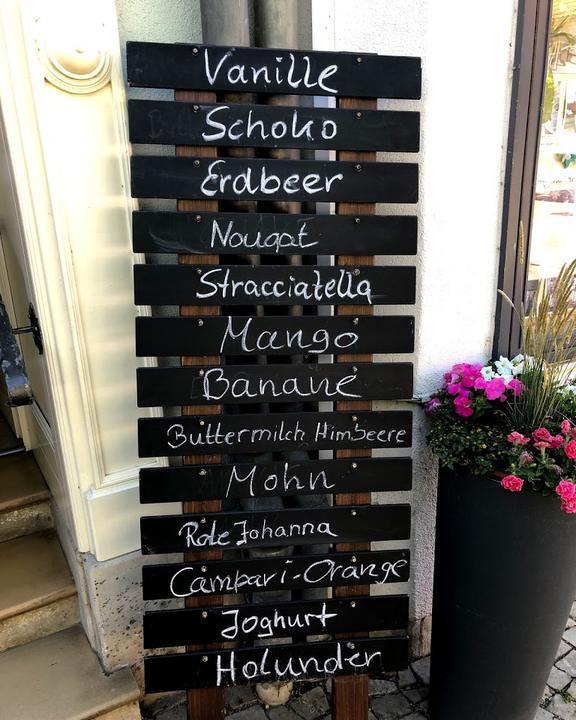 Vanille
Schoko
Erdbeer
Nougat
Stracciatella
Mango
Banane
Buttermilch Himbeere
Mohn
Rote Johanna
Campari-Orange
Joghurt
Holunder